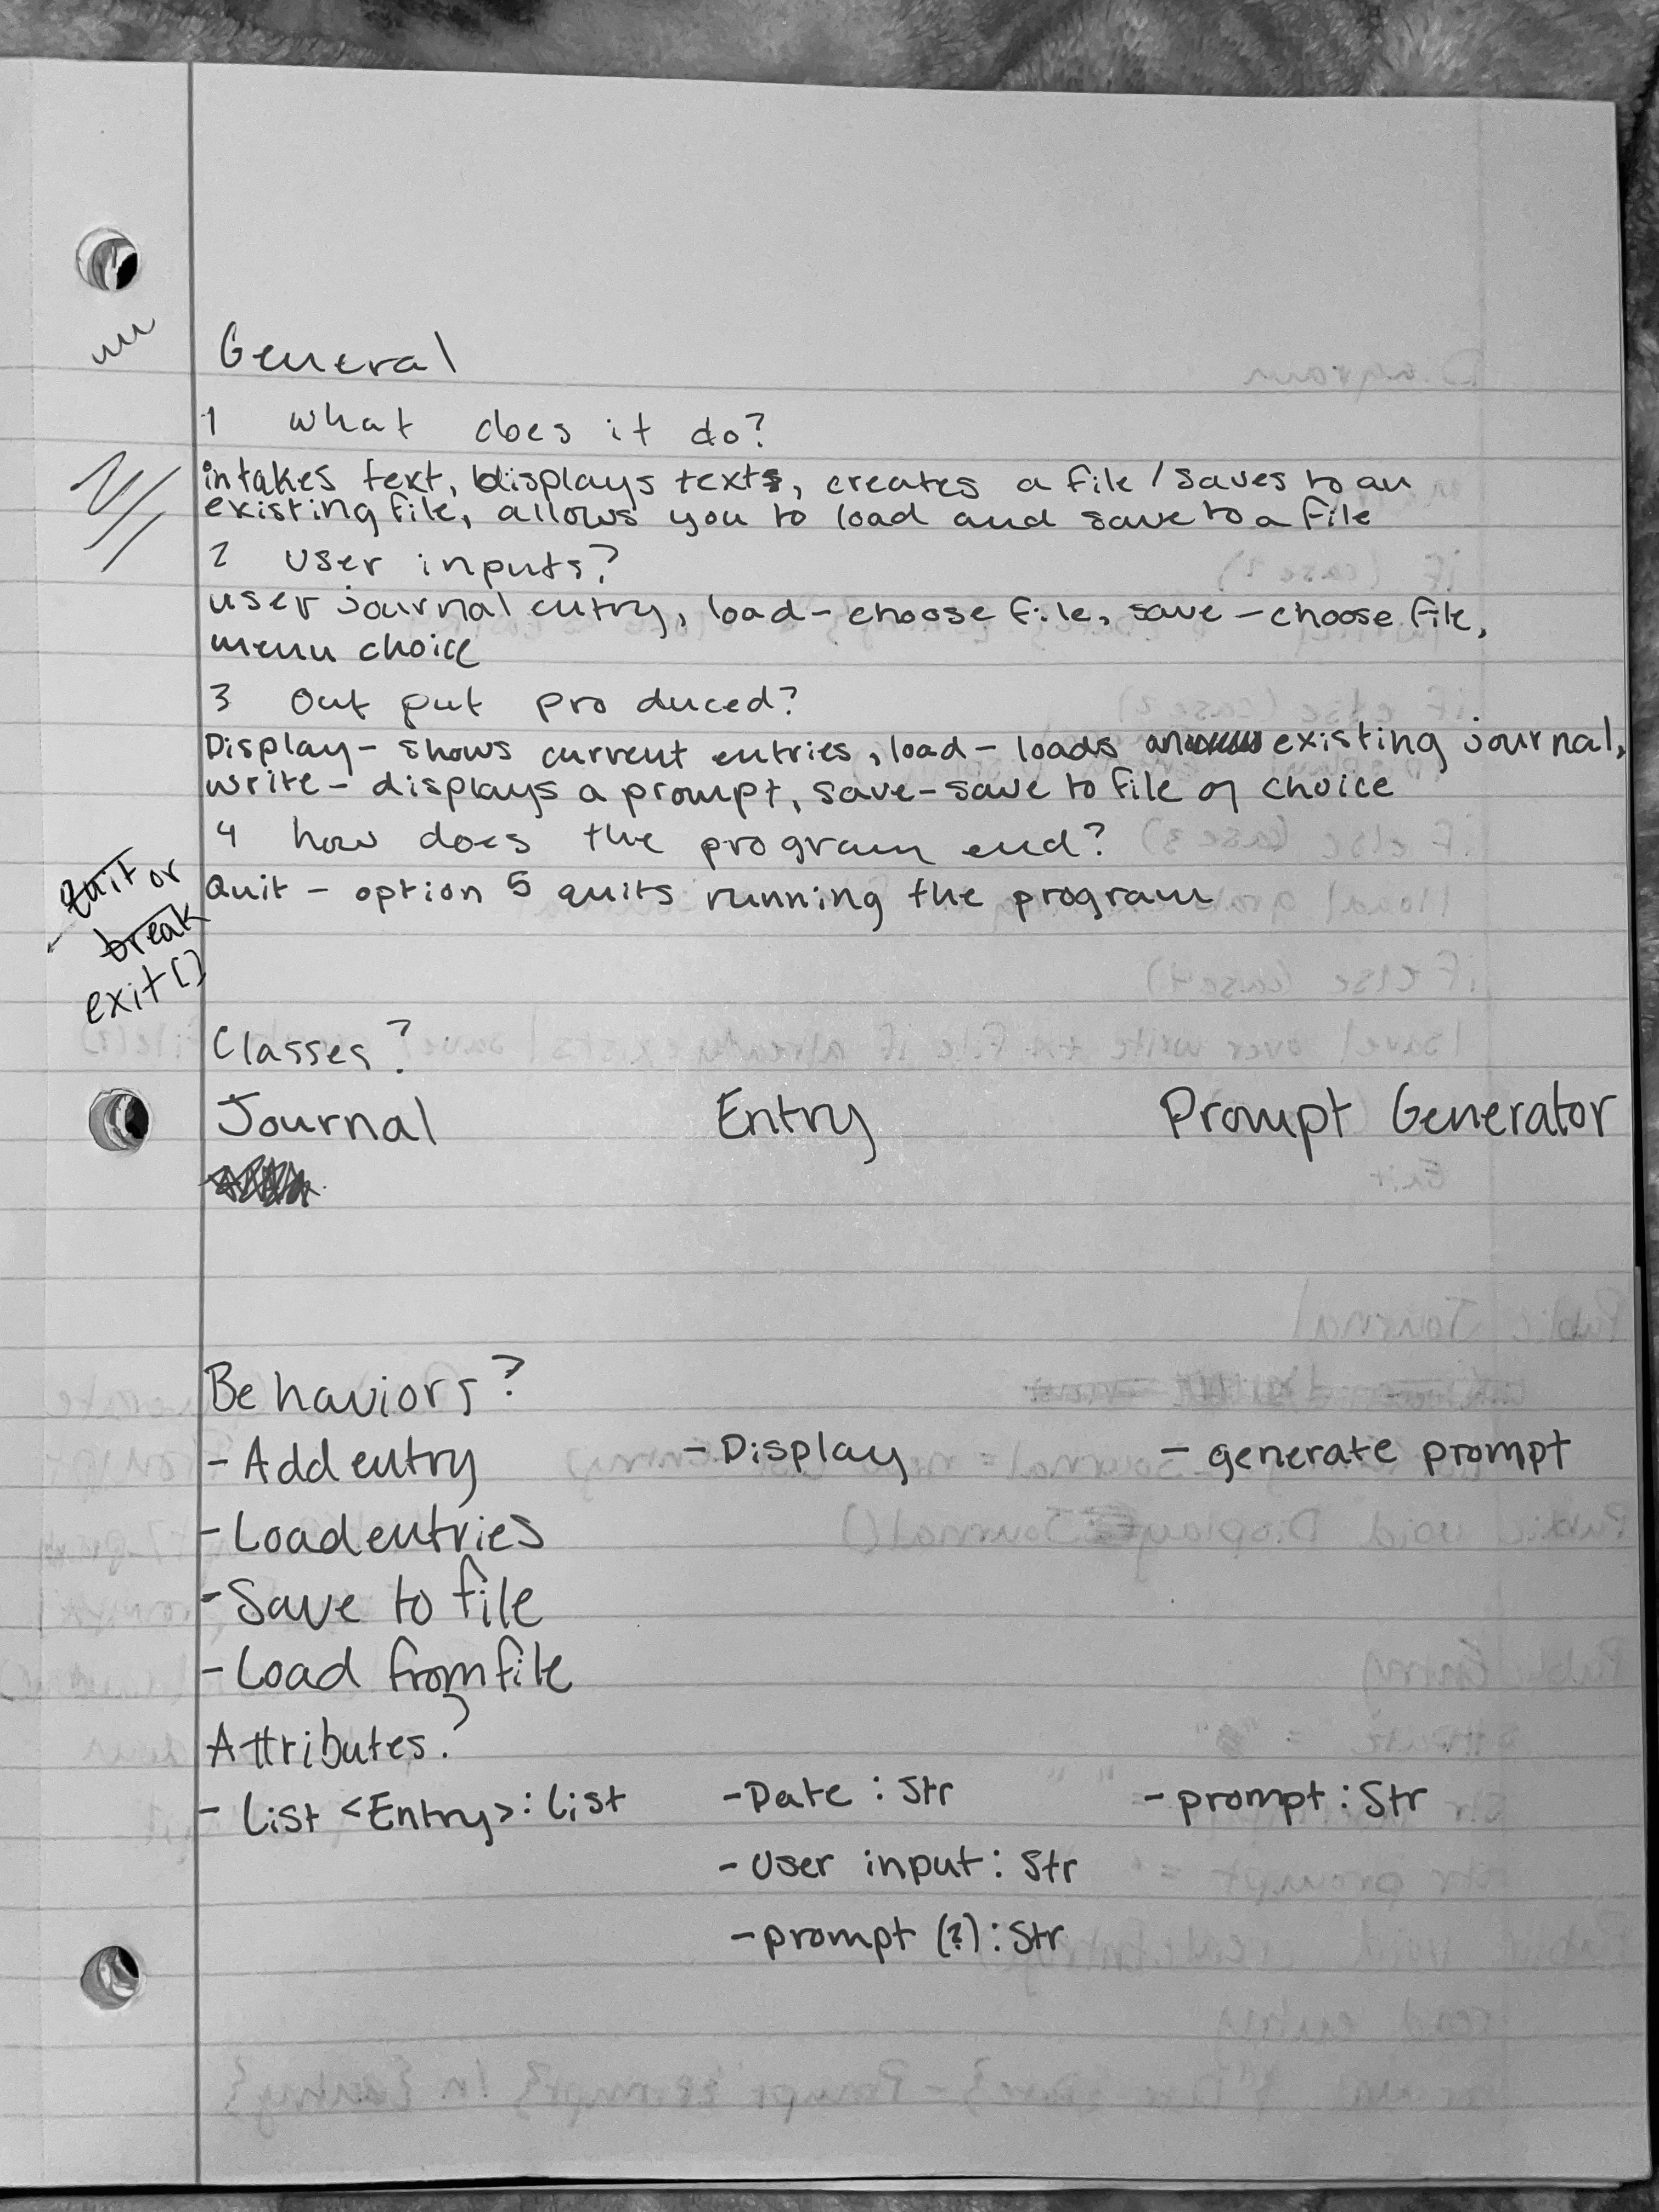 General
1 what does it do?
intakes text, displays texts, creates a file / saves to an
existing file, allows you to load and save to a file
2 user inputs?
user journal entry, load - choose file, save - choose file,
menu choice
3 Out put pro duced?
Display - shows current entries, load - loads an existing journal,
write - displays a prompt, save - save to file of choice
4 how does the program end?
Quit - option 5 quits running the program
quit or
break
exit[]
Classes?
Journal Entry Prompt Generator
Behaviors?
- Add entry - Display - generate prompt
- Load entries
- Save to file
- Load from file
Attributes?
- List <Entry> : list - Date : Str - prompt : Str
- User input : Str
- prompt (?) : Str